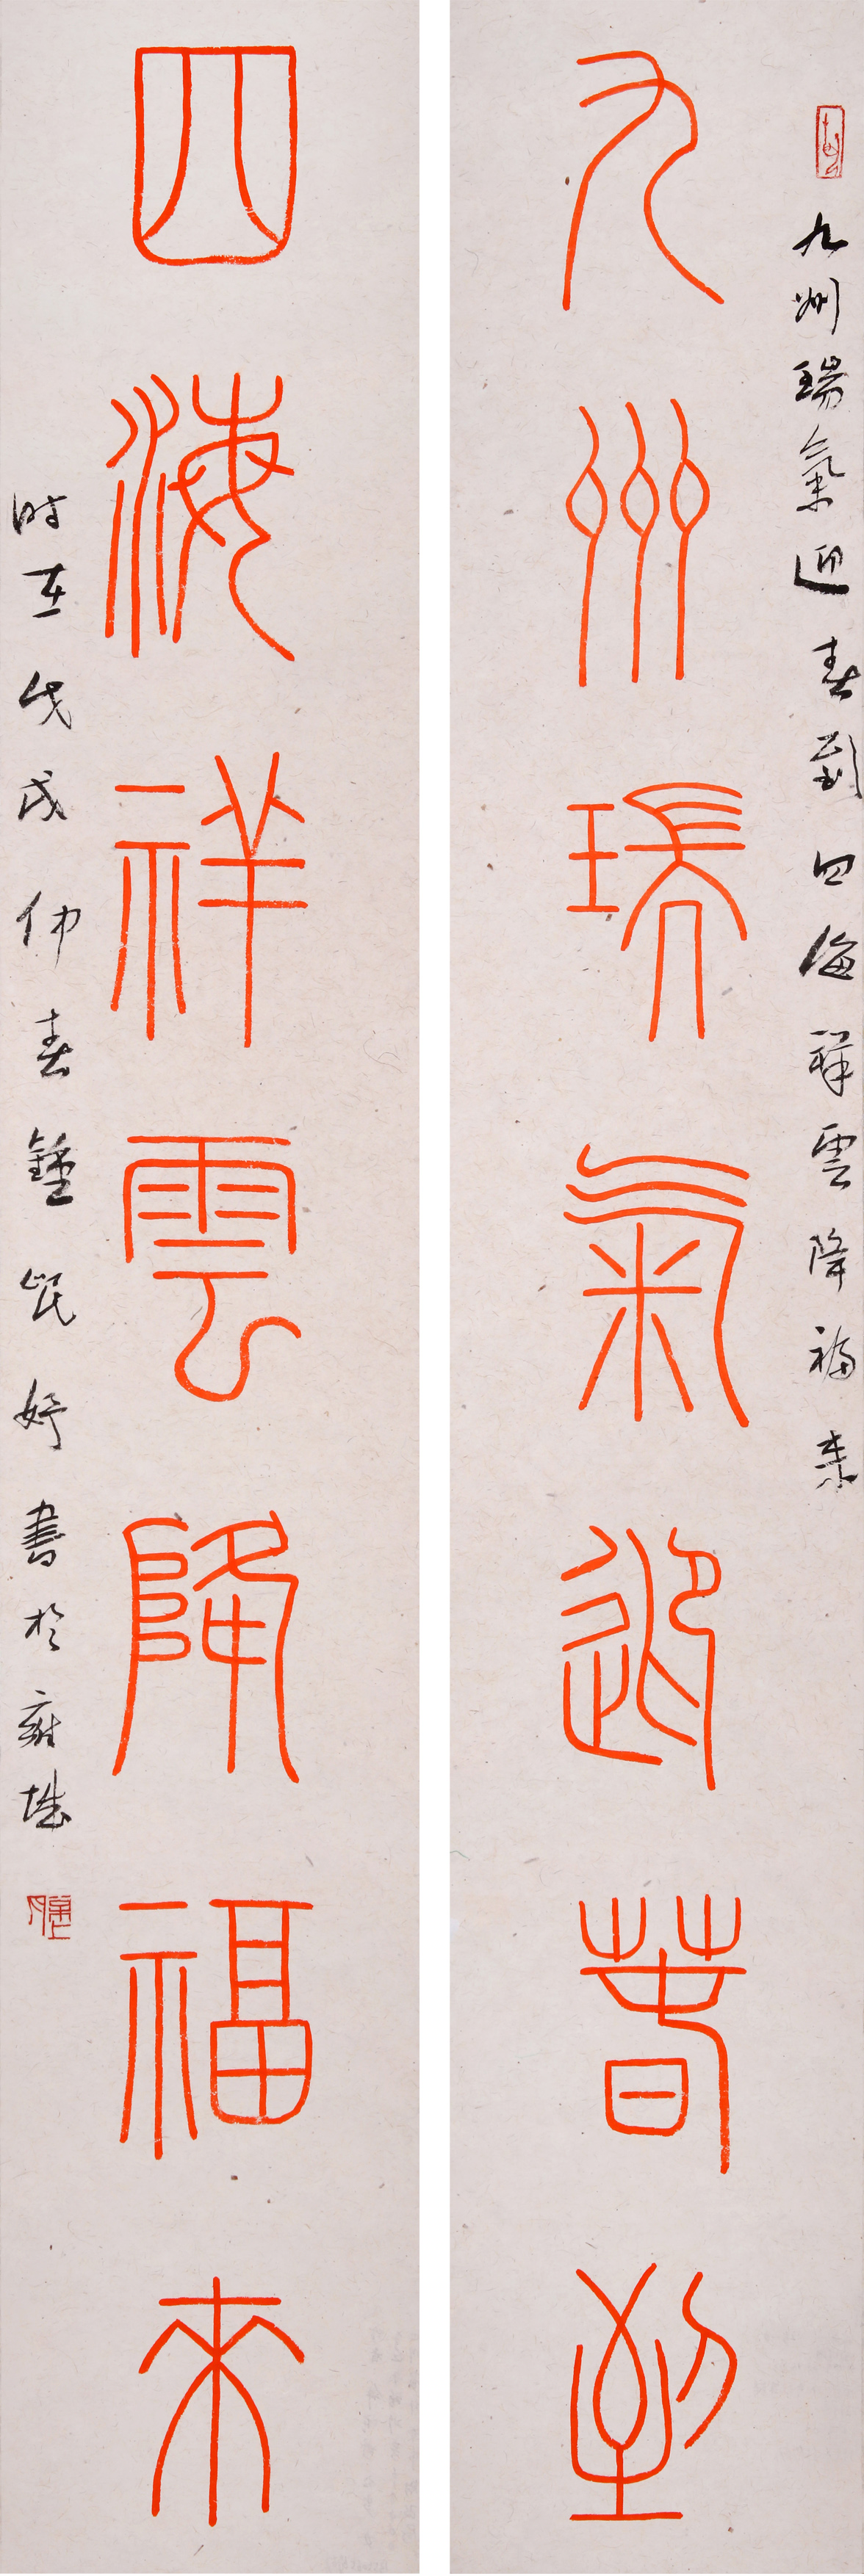 九州瑞氣迎春到
九州瑞氣迎春到四海祥雲降福來
四海祥雲降福來
时在戊戌仲春鍾民妤書於雍城